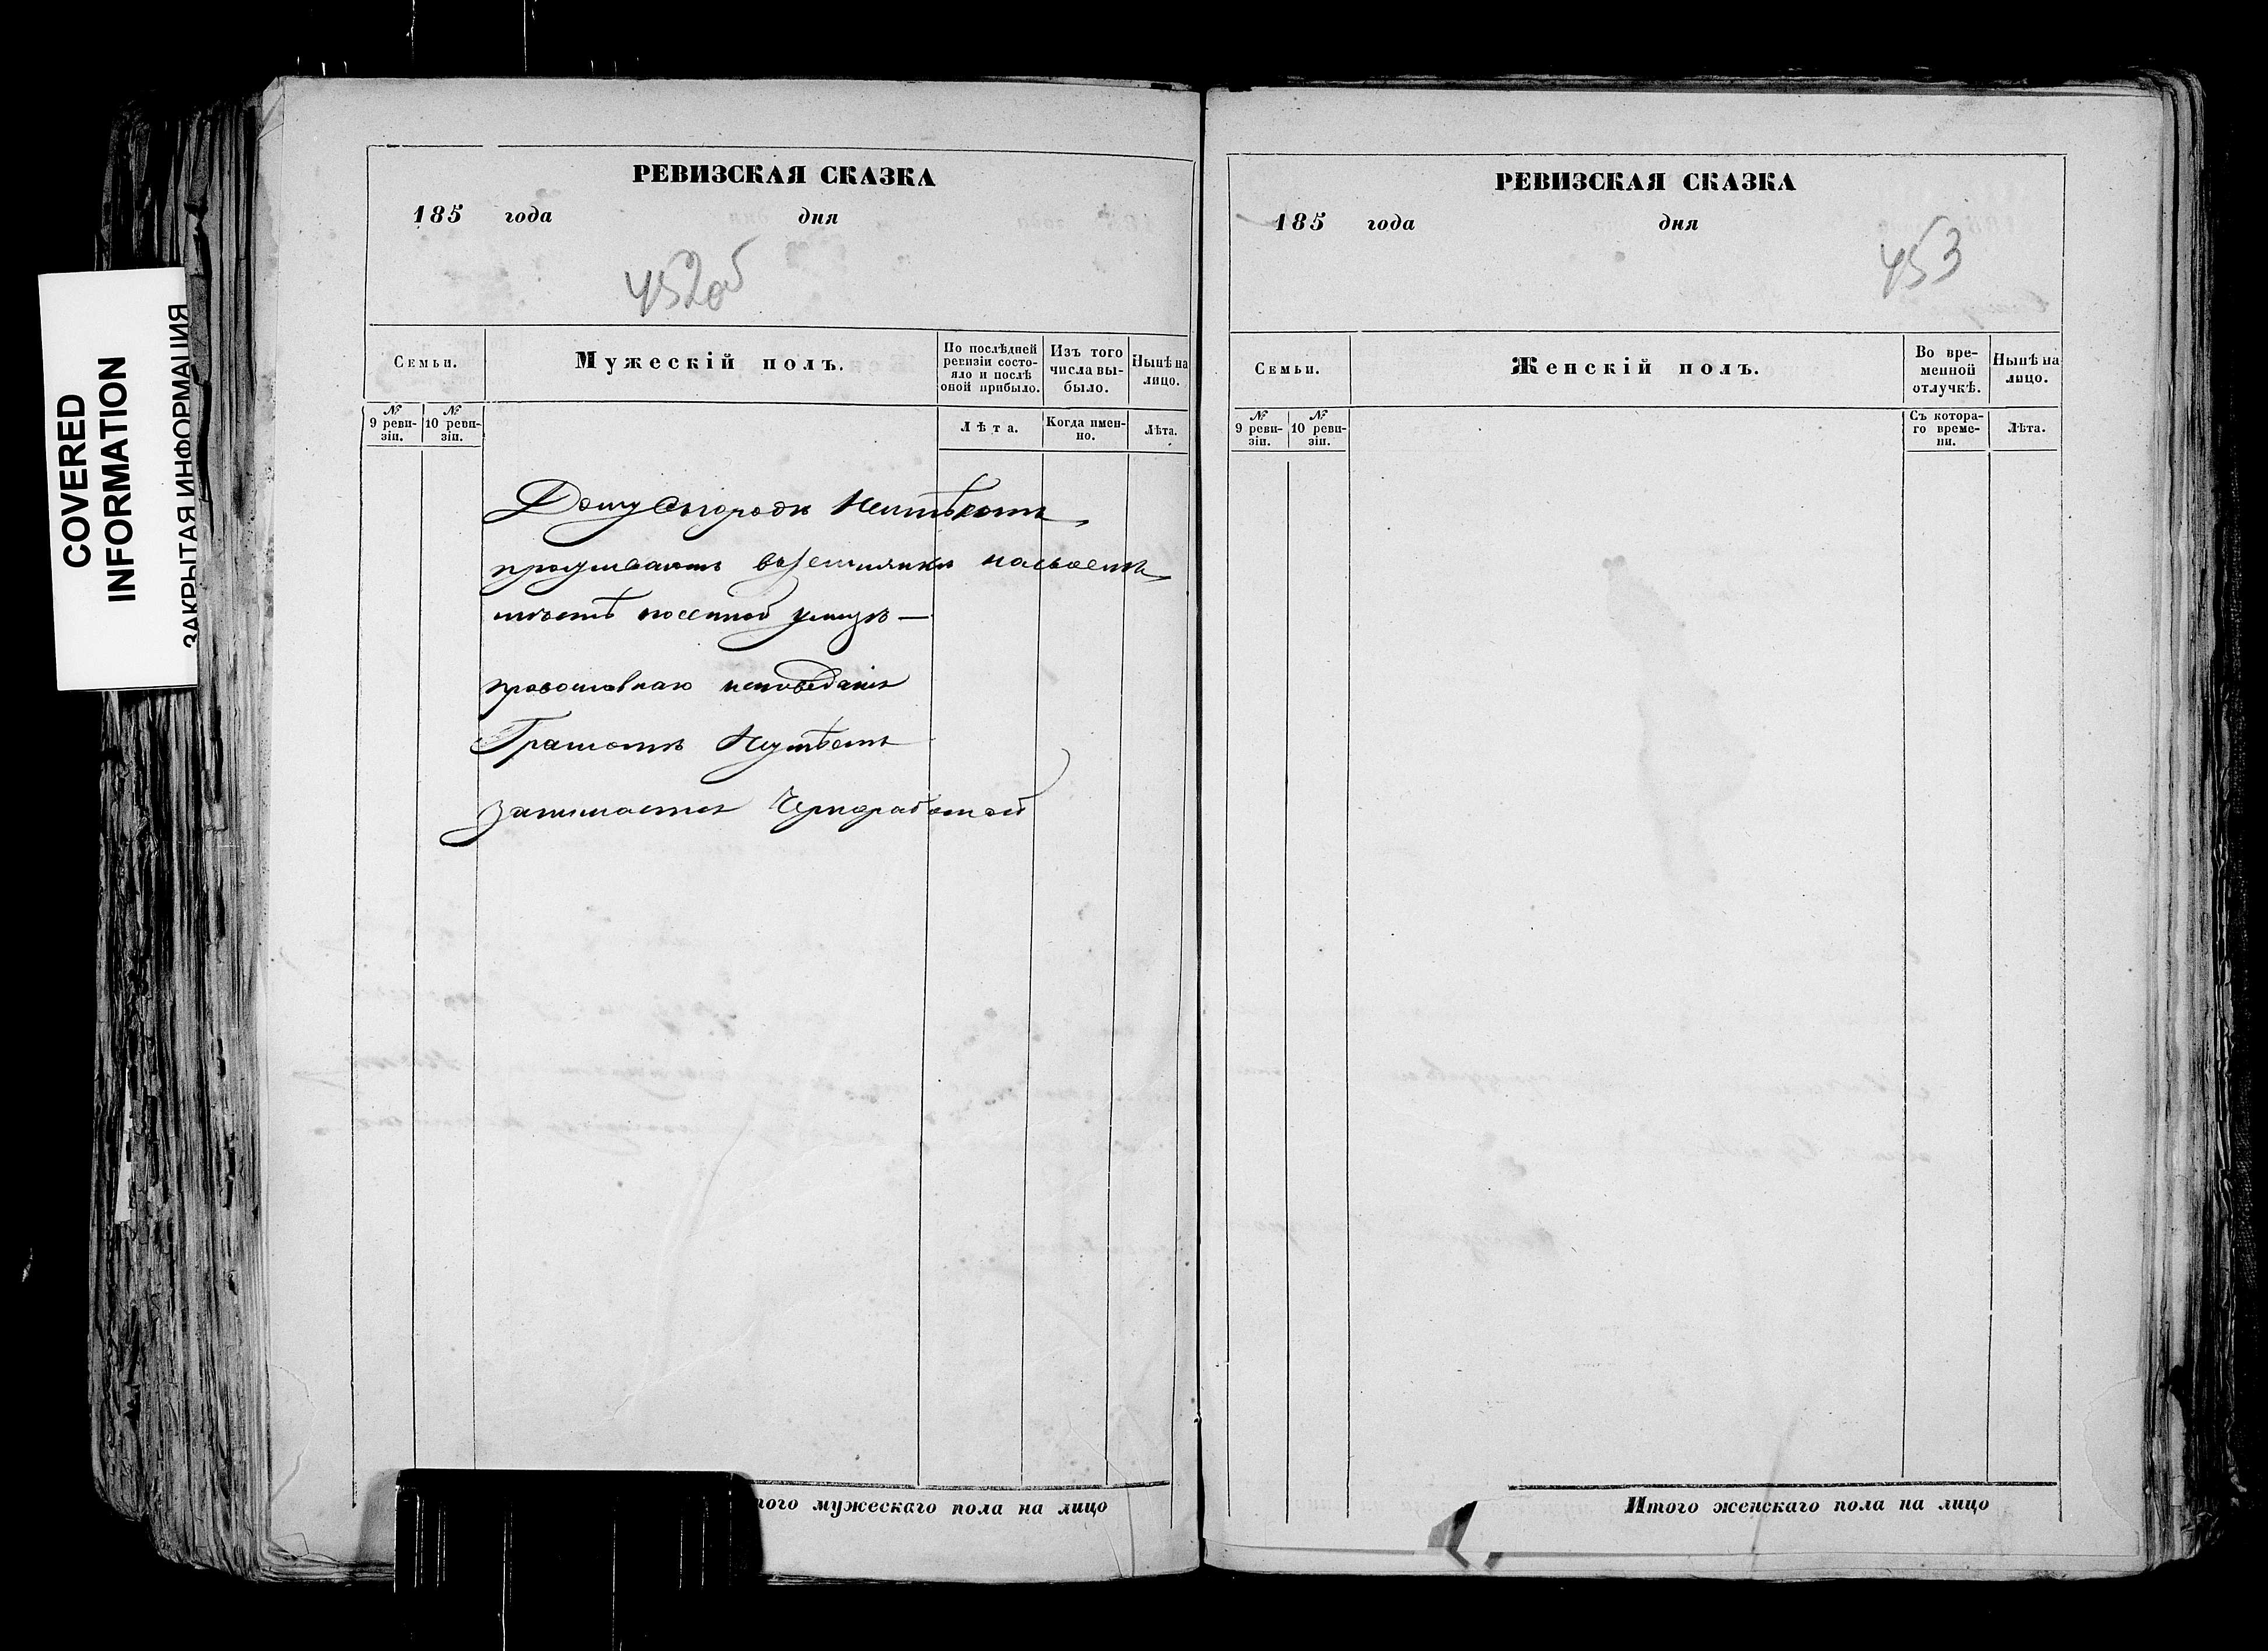 COVERED
INFORMATION
ЗАКРЫТАЯ ИНФОРМАЦИЯ
РЕВИЗСКАЯ СКАЗКА
185 года дня
452об
Семьи.
Мужескій полъ.
По послѣдней ревизіи состояло и послѣ оной прибыло.
Изъ того числа выбыло.
Нынѣ на лицо.
№ 9 ревизіи.
№ 10 ревизіи.
Лѣта.
Когда именно.
Лѣта.
Дому въ городѣ Неимѣютъ
проживаютъ
православнаго исповѣданія
Грамотѣ Неумѣетъ
занимается Чернаработой
того мужескаго пола на лицо
РЕВИЗСКАЯ СКАЗКА
185 года дня
453
Семьи.
Женскій полъ.
Во временной отлучкѣ.
Нынѣ на лицо.
№ 9 ревизіи.
№ 10 ревизіи.
Съ котораго времени.
Лѣта.
Итого женскаго пола на лицо